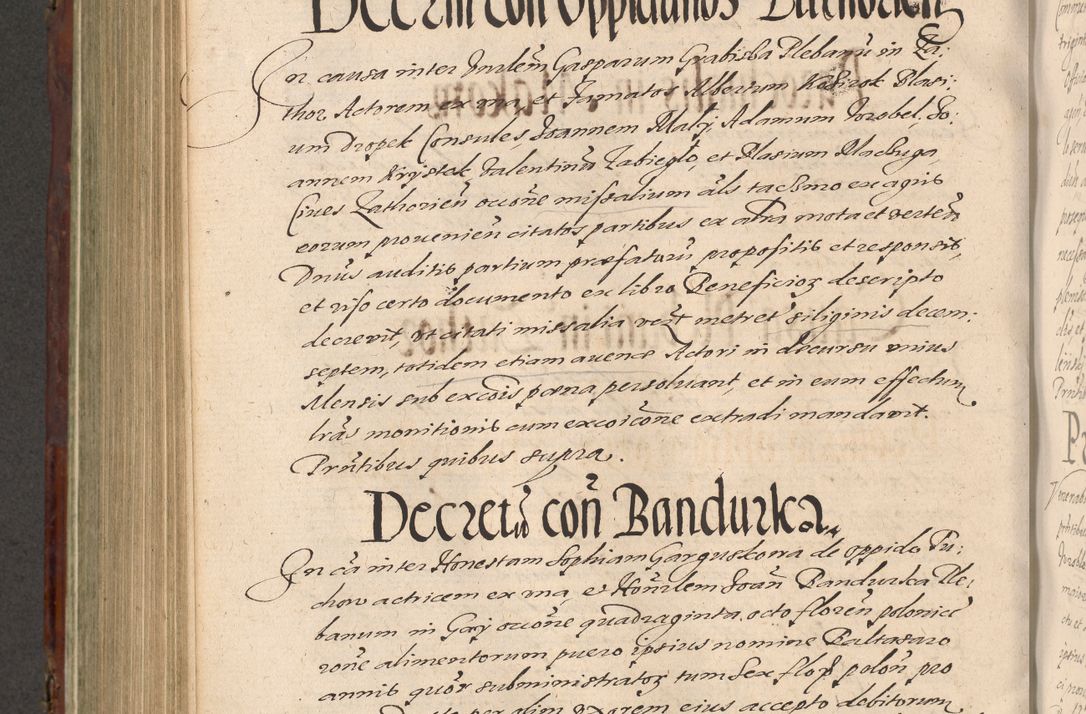 Decretũ con Oppidanos Zathorien
In causa inter Venlem Gasparum Grabisba Plebanũ in Za:
thor Actorem ex una, et Famatos Albertum Kosicek Blasi:
um Dropek Consules, Joannem Maly, Adamum Wrobel, Jo:
annem Krystek Valentinũ Zabieglo, et Blasium Machuga,
Cives Zathorień occoñe missalium als taczmo ex agris
eorum provenień citatos partibus ex altera mota et verteń
Dnus auditis partium præfatarũ propositis et responsis,
et viso certo documento ex libro Beneficioꝝ descripto
decrevit, ut citati missalia vtz metret siliginis decem:
septem, totidem etiam avenæ Actori in decursu unius
Mensis sub excois pœna persolvant, et in eum effectum
lras monitionis cum excoicoñe extradi mandavit.
Prñtibus quibus supra.
Decretũ con Bandurka
In cã inter Honestam Sophiam Garguskowa de oppido Tu:
chow actricem ex una, et Honrlem Joań Bandurka Ple:
banum in Gory occoñe quadraginta octo floreń polonicć
rone alimentorum puero ipsius nomine Baltasaro
annis quor subministratoꝝ tum sex flor poloń pro
per alim uxorem eius accepto debitorum